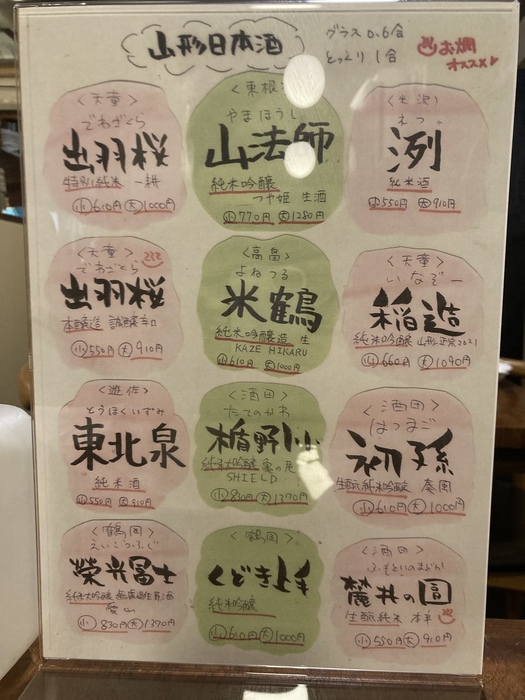 山形日本酒
グラス 0.6合
とっくり 1合
お燗
オススメ
〈天童〉
でわざくら
出羽桜
特別純米 一耕
小610円 大1000円
〈東根〉
やまほうし
山法師
純米吟醸
つや姫 生酒
小770円 大1280円
〈米沢〉
れつ
洌
純米酒
小550円 大910円
〈天童〉
でわざくら
出羽桜
本醸造 誠醸辛口
小550円 大910円
〈高畠〉
よねつる
米鶴
純米吟醸造 生
KAZE HIKARU
小610円 大1000円
〈天童〉
いなぞー
稲造
純米吟醸 山形正宗2021
小660円 大1090円
〈遊佐〉
とうほくいずみ
東北泉
純米酒
小550円 大910円
〈酒田〉
たてのかわ
楯野川
純米大吟醸 亀の尾
SHIELD
小830円 大1370円
〈酒田〉
はつまご
初孫
生酛純米吟醸
小610円 大1000円
〈鶴岡〉
えいこうふじ
榮光冨士
純米大吟醸 無濾過生原酒
愛山
小830円 大1370円
〈鶴岡〉
くどき上手
純米吟醸
小610円 大1000円
〈酒田〉
ふもといのまどか
麓井の圓
生酛純米 本辛
小550円 大910円